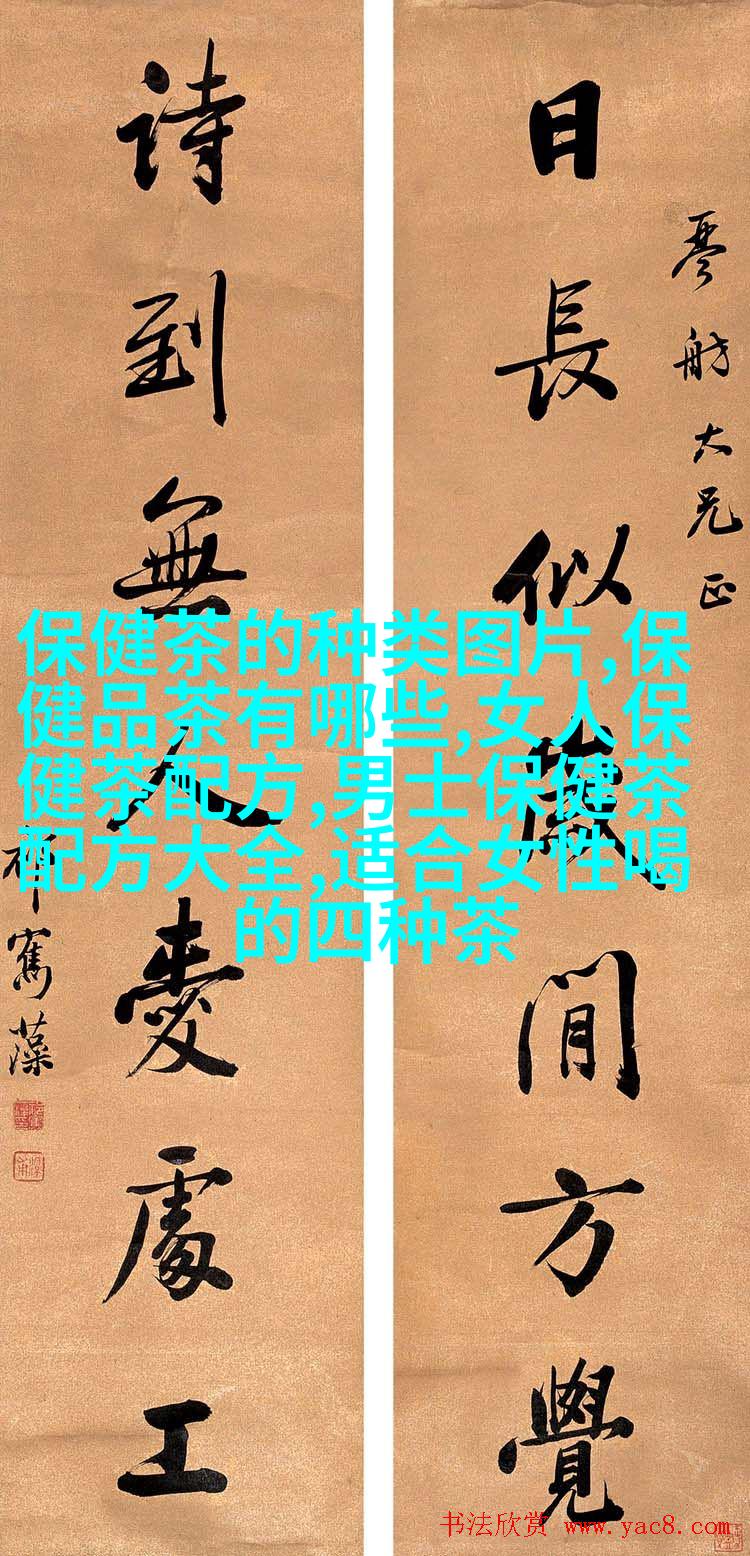 琴舫大兄正
日長似歲閒方覺
詩到無人愛處工
祁寯藻
保健茶的种类图片,保
健品茶有哪些,女人保
健茶配方,男士保健茶
配方大全,适合女性喝
的四种茶
书法欣赏 www.yac8.com